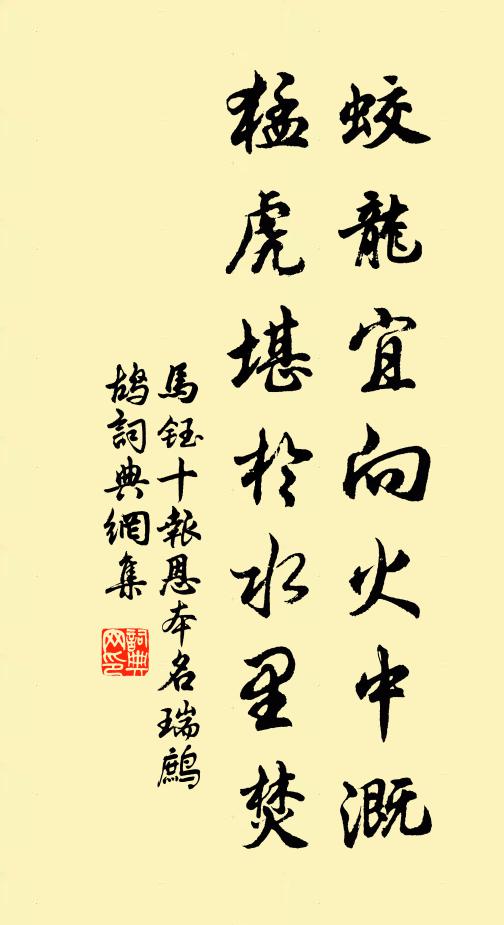 蛟龍宜向火中溉
猛虎堪於水里焚
馬鈺十報恩本名瑞鷓
鴣詞典網集
詞典網印